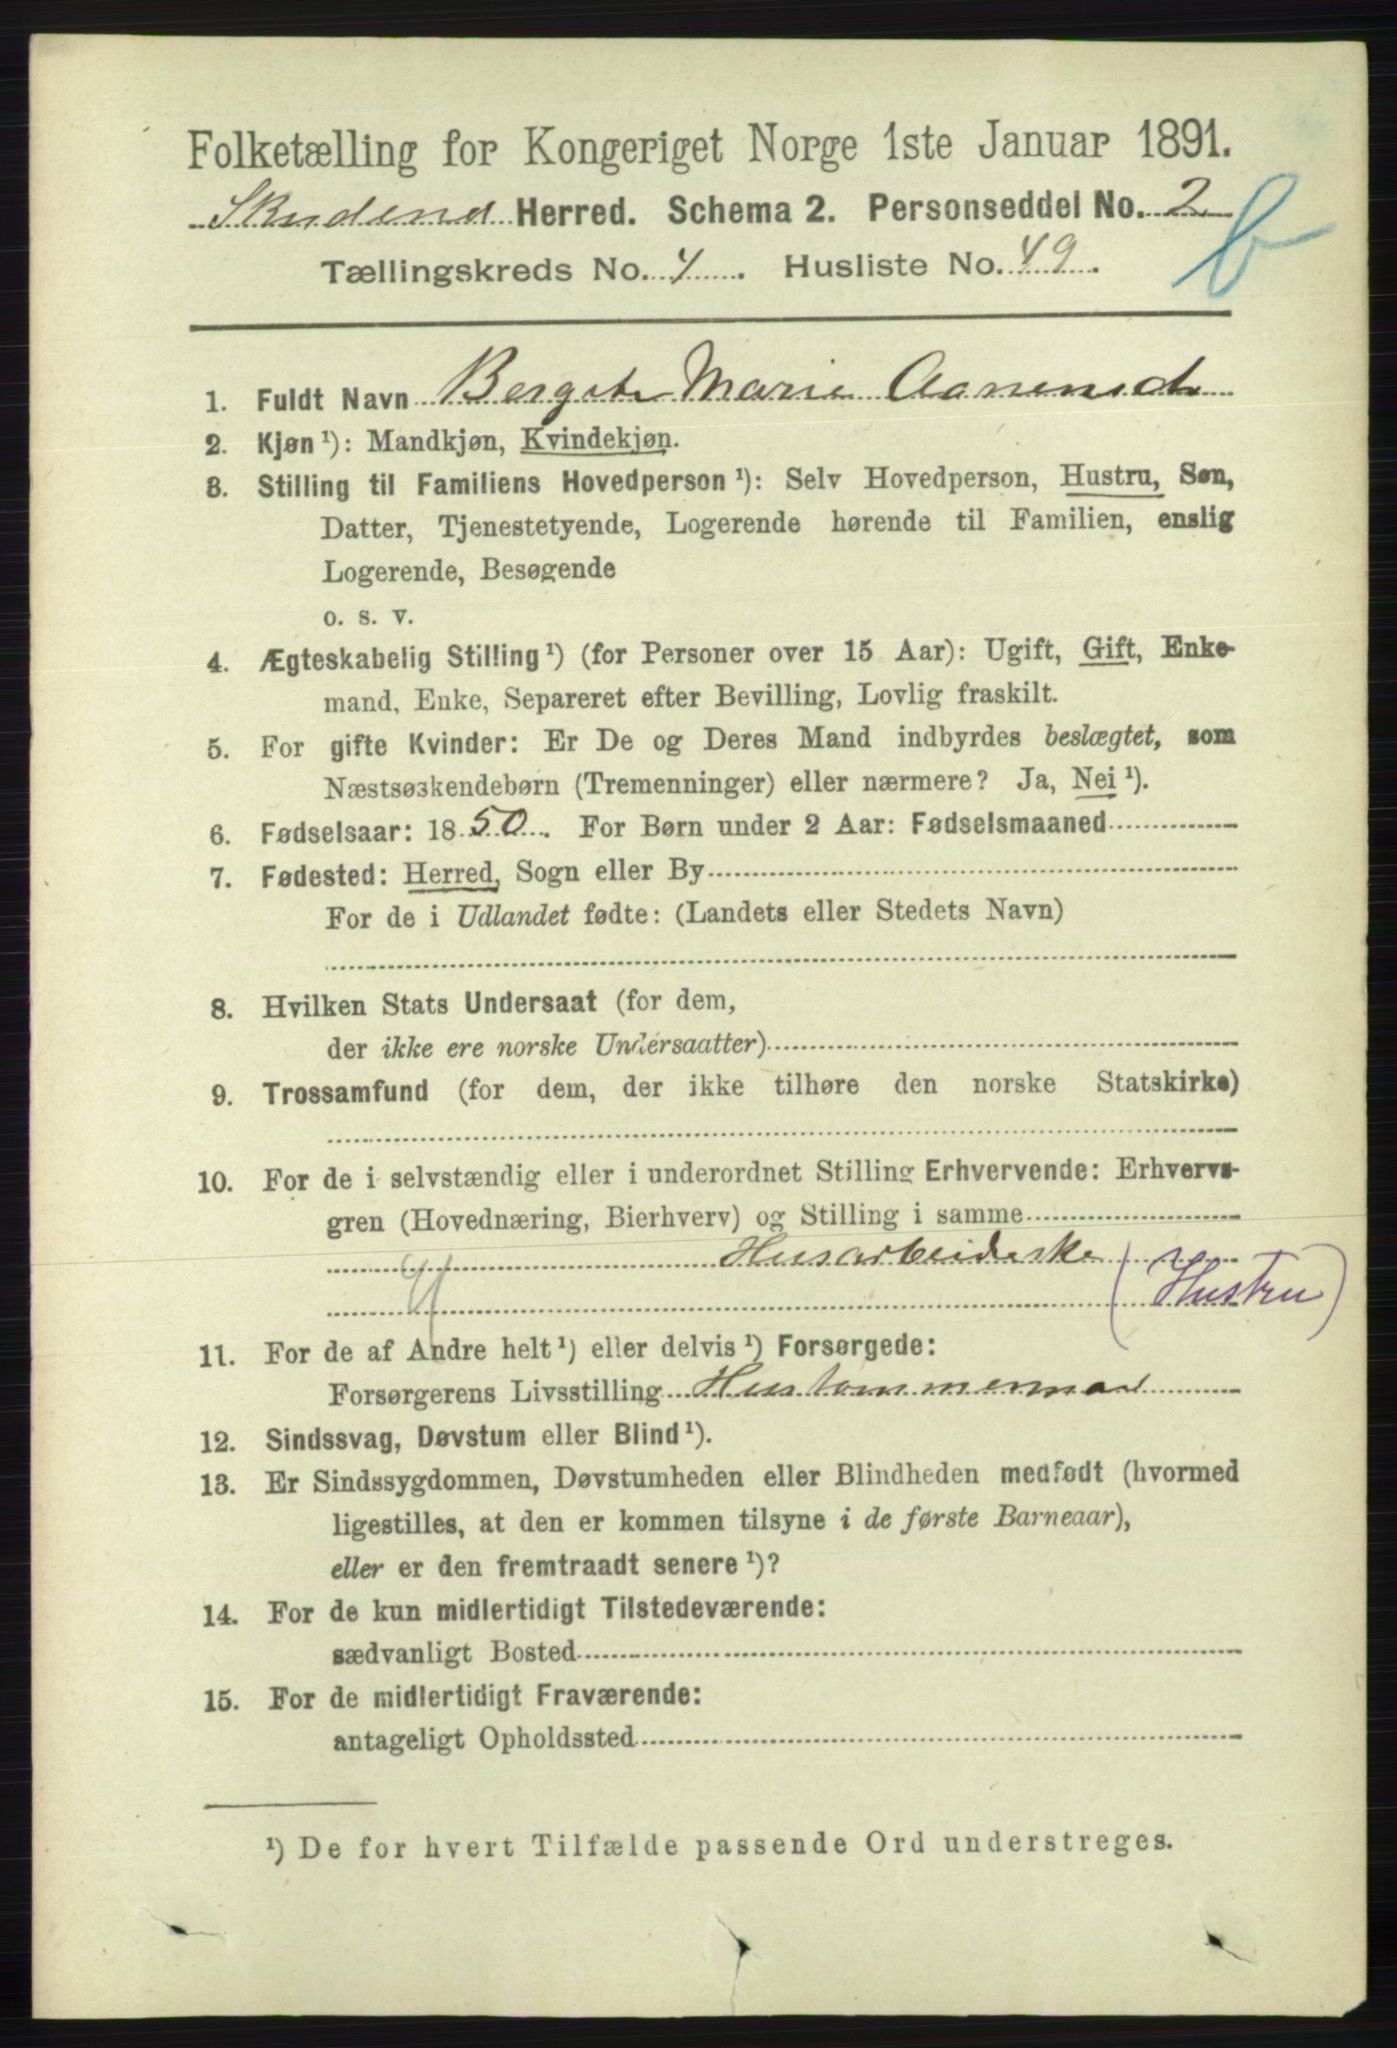 Folketælling for Kongeriget Norge 1ste Januar 1891.
Skudenes Herred. Schema 2. Personseddel No. 2
b
Tællingskreds No. 4. Husliste No. 49.
1. Fuldt Navn Bergete Marie Aanensd
2. Kjøn ¹): Mandkjøn, Kvindekjøn.
3. Stilling til Familiens Hovedperson ¹): Selv Hovedperson, Hustru, Søn,
Datter, Tjenestetyende, Logerende hørende til Familien, enslig
Logerende, Besøgende
o. s. v.
4. Ægteskabelig Stilling ¹) (for Personer over 15 Aar): Ugift, Gift, Enke-
mand, Enke, Separeret efter Bevilling, Lovlig fraskilt.
5. For gifte Kvinder: Er De og Deres Mand indbyrdes beslægtet, som
Næstsøskendebørn (Tremenninger) eller nærmere? Ja, Nei ¹).
6. Fødselsaar: 1850. For Børn under 2 Aar: Fødselsmaaned
7. Fødested: Herred, Sogn eller By
For de i Udlandet fødte: (Landets eller Stedets Navn)
8. Hvilken Stats Undersaat (for dem,
der ikke ere norske Undersaatter)
9. Trossamfund (for dem, der ikke tilhøre den norske Statskirke)
10. For de i selvstændig eller i underordnet Stilling Erhvervende: Erhvervs-
gren (Hovednæring, Bierhverv) og Stilling i samme
Husarbeideske
(Hustru)
11. For de af Andre helt ¹) eller delvis ¹) Forsørgede:
Forsørgerens Livsstilling Hustømmermand
12. Sindssvag, Døvstum eller Blind ¹).
13. Er Sindssygdommen, Døvstumheden eller Blindheden medfødt (hvormed
ligestilles, at den er kommen tilsyne i de første Barneaar),
eller er den fremtraadt senere ¹)?
14. For de kun midlertidigt Tilstedeværende:
sædvanligt Bosted
15. For de midlertidigt Fraværende:
antageligt Opholdssted
¹) De for hvert Tilfælde passende Ord understreges.